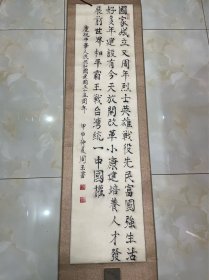 國家成立又周年烈士英雄戰役先民富國強生活
好多年建設有今天放開改革小康建培養人才發
展前世界和平霸王戰台灣統一中國權
慶祝中華人民共和國成立五五周年
甲申仲夏周玉書